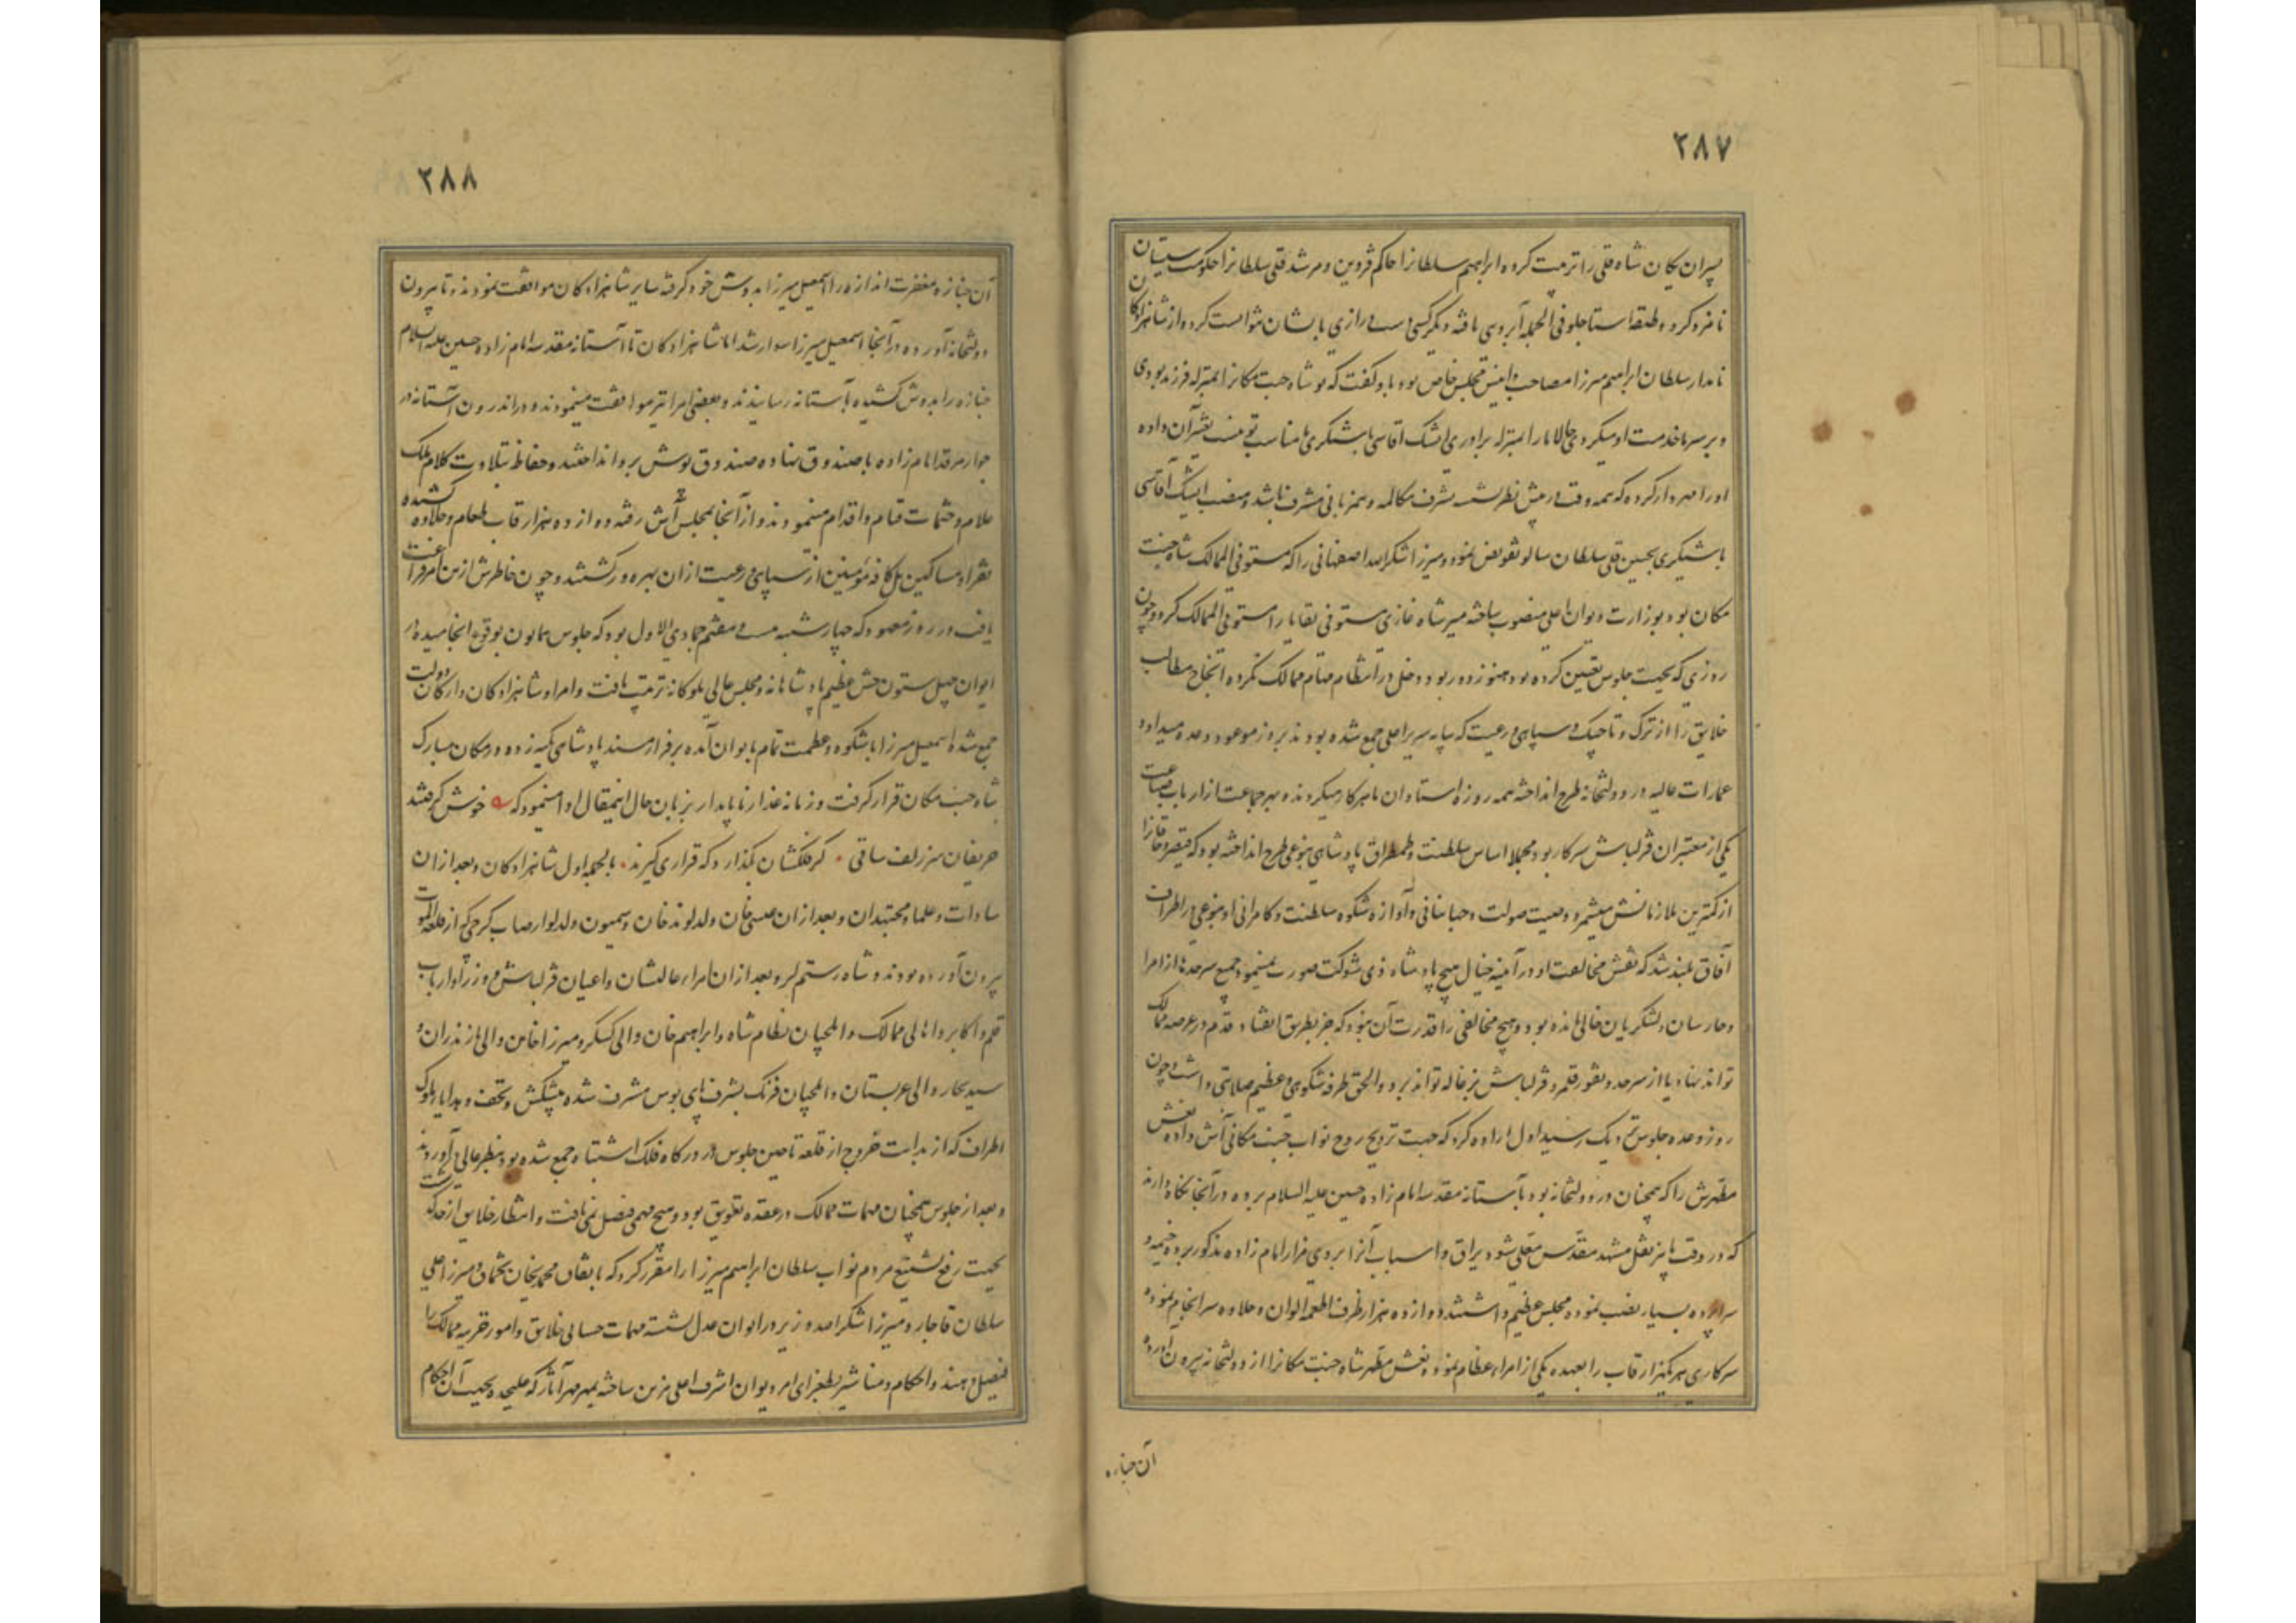 ۲۸۷
پسران یکان شاه قلی را تربیت کرده ابراهیم سلطانرا حاکم قزوین و مرشد قلی سلطانرا حکومت سیستان
نامزد کرد و طبقه استاجلو فی الجمله آبرویی یافته دیگر کسی دست درازی بایشان نتوانست کرد و از شاهزادکان
نامدار سلطان ابراهیم میرزا مصاحب و انیس مجلس خاص بود باو گفت که تو شاه جنت مکانرا بمنزله فرزند بودی
و بر سر ما خدمت او میکردی حالا ما را بمنزله برادری ایشک آقاسی باشیگری مناسب تو نیست تغییر آن داده
او را مهردار کرد که همه وقت در پیش نظر بشرف مکالمه و همزبانی مشرف باشد و منصب ایشیک آقاسی
باشیگری بحسین قلی سلطان شاملو تفویض نمود و میرزا شکرالله اصفهانی را که مستوفی الممالک شاه جنت
مکان بود بوزارت دیوان اعلی منصوب ساخته میر شاه غازی مستوفی بقایا را مستوفی الممالک کرد و چون
روزی که بجهت جلوس تعیین کرده بود هنوز دور بود و دخل در انتظام مهام ممالک نکرده انجاح مطالب
خلایق را از ترک و تاجیک و سپاهی و رعیت که بپایه سریر اعلی جمع شده بودند بروز موعود وعده میداد و
عمارات عالیه در دولتخانه طرح انداخته همه روزه استادان ماهر کار میکردند و سر جماعت از ارباب صناعت
یکی از معتبران قزلباش سرکار بود مجملا اساس سلطنت و طمطراق پادشاهی بنوعی طرح انداخته بود که قیصر و خاقانرا
از کمترین ملازمانش میشمرد و صیت صولت و جهانبانی و آوازه شکوه سلطنت و کامرانی او بنوعی در اطراف
آفاق بلند شد که نقش مخالفت او در آینه خیال هیچ پادشاه ذی شوکت صورت نمینمود جمیع سرحدها از امرا
و حارسان و لشکریان خالی مانده بود و هیچ مخالفی را قدرت آن نبود که جز بطریق انقیاد قدم در عرصه ممالک
تواند نهاد یا از سرحد و ثغور قلمرو قزلباش بزغاله تواند برد و الحق طرفه شکوهی و عظیم صلابتی داشت چون
روز وعده جلوس نزدیک رسید اول اراده کرد که جهت ترویح روح نواب جنت مکانی آش داده نعش
مطهرش را که همچنان در دولتخانه بود بآستانه مقدسه امام زاده حسین علیه السلام برده در آنجا نگاه دارند
که در وقت باز نقل مشهد مقدس معلی شود یراق و اسباب آنرا بر وی مزار امام زاده مذکور برده خیمه و
سراپرده بسیار نصب نموده مجلس عظیم داشتند و دوازده هزار ظرف اطعمه الوان و حلاوه سرانجام نموده
سرکاری هر یکهزار قاب را بعهده یکی از امراء عظام نمود و نعش مطهر شاه جنت مکانرا از دولتخانه بیرون آورده
آن جنازه
۲۸۸
آن جنازه مغفرت اندازه را اسمعیل میرزا بدوش خود گرفته سایر شاهزادکان موافقت نمودند و تا بیرون
دولتخانه آورده در آنجا اسمعیل میرزا سوار شد اما شاهزادکان تا آستانه مقدسه امام زاده حسین علیه السلام
جنازه را بدوش کشیده بآستانه رسانیدند و بعضی امرا نیز موافقت مینمودند و در اندرون آستانه در
جوار مرقد امام زاده با صندوق نهاده صندوق پوش بر و انداختند و حفاظ بتلاوت کلام ملک
علام و ختمات قیام و اقدام مینمودند و از آنجا بمجلس آش رفته دوازده هزار قاب طعام و حلاوه کشیده
فقرا و مساکین بل کافه مؤمنین از سپاهی و رعیت از ان بهره ور گشتند و چون خاطرش ازین امر فراغت
یافت در روز معهود که چهارشنبه بیست و هفتم جمادی الاول بود که جلوس همایون بوقوع انجامیده در
ایوان چهل ستون جشن عظیم پادشاهانه و مجلس عالی ملوکانه ترتیب یافت و امرا و شاهزادکان و ارکان دولت
جمع شده اسمعیل میرزا با شکوه و عظمت تمام بایوان آمده بر فراز مسند پادشاهی تکیه زده در مکان مبارک
شاه جنت مکان قرار گرفت و زمانه غدار ناپایدار بزبان حال اینمقال ادا مینمود که خوش گرفتند
حریفان سر زلف ساقی گر فلکشان بگذارد که قراری گیرند بالجمله اول شاهزادکان و بعد از ان
سادات و علما و مجتهدان و بعد از ان عیسی خان ولد لوند خان و سیمون ولد لوارصاب گرجی که از قلعه الموت
بیرون آورده بودند و شاه رستم لر و بعد از ان امراء عالیشان و اعیان قزلباش و وزرا و ارباب
قلم و اکابر و اهالی ممالک و ایلچیان نظام شاه و ابراهیم خان والی کسکر و میرزا خان والی مازندران و
سید سجاد والی عربستان و ایلچیان فرنک بشرف پای بوس مشرف شده پیشکش و تحف و هدایا ملوک
اطراف که از بدایت خروج از قلعه تا حین جلوس در درگاه فلک اشتباه جمع شده بود بنظر عالی در آوردند
و بعد از جلوس همچنان مهمات ممالک در عقده تعویق بود و هیچ مهمی فیصل نمی یافت و انتظار خلایق از حد گذشت
بجهت رفع تشنیع مردم نواب سلطان ابراهیم میرزا را مقرر کرد که باتفاق محمدی خان تخماق و میرزا علی
سلطان قاجار و میرزا شکرالله وزیر در ایوان عدل نشسته مهمات حسابی خلایق و امور ضروریه ممالک را
فیصل دهند و احکام و مناشیر بطغرای امر دیوان اشرف اعلی مزین ساخته بمهر مهر آثار که علیحده بجهت آن احکام